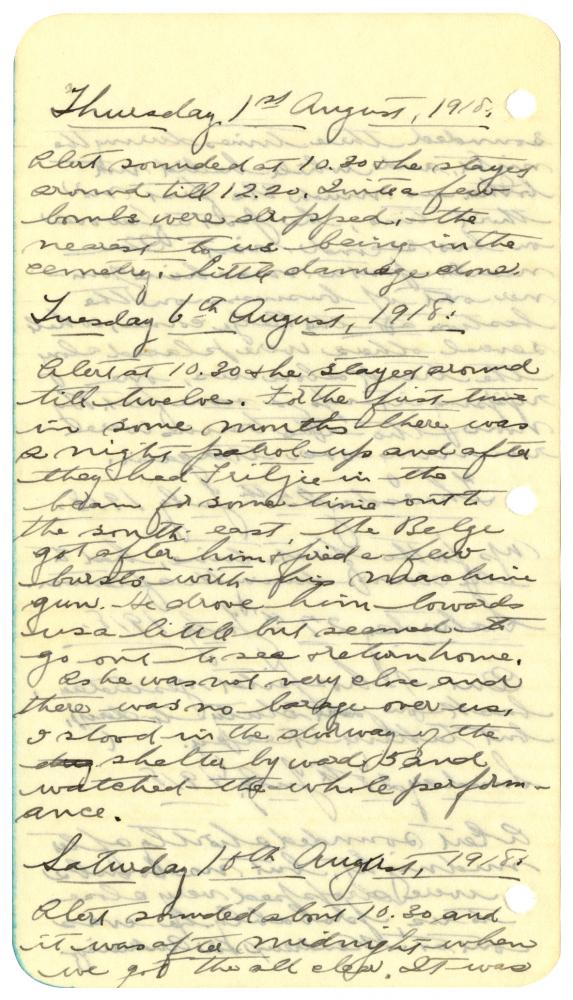 Thursday 1st August, 1918:
Alert sounded at 10.30 & he stayed
around till 12.20. Quite a few
bombs were dropped, the
nearest to us being in the
cemetry. little damage done.
Tuesday 6th August, 1918:
Alert at 10.30 & he stayed around
till twelve. For the first time
in some months there was
a night patrol up and after
they had Fritzie in the
beam for some time out to
the south east, the Belge
got after him & fired a few
bursts with his machine
gun. He drove him towards
us a little but seemed to
go out to sea & return home.
As he was not very close and
there was no barage over us,
I stood in the doorway of the
shelter by ward 5 and
watched the whole perform-
ance.
Saturday 10th August, 1918:
Alert sounded about 10.30 and
it was after midnight when
we got the all clear. It was